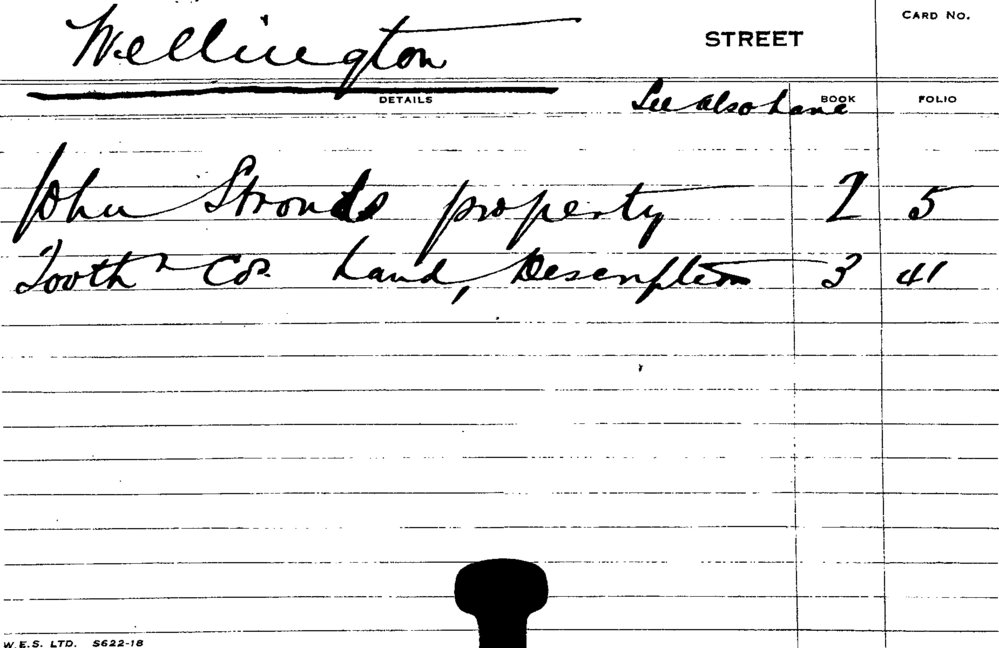 CARD No.
Wellington STREET
See also Lane
DETAILS BOOK FOLIO
John Strouds property 2 5
Tooth & Cos. Land, Description 3 41
W.E.S. LTD. S622-18